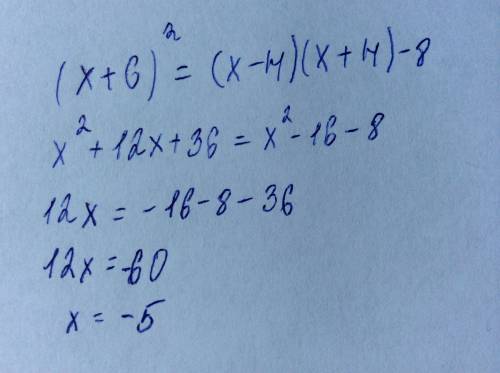 (x+6)² = (x-4)(x+4)-8
x² + 12x + 36 = x² - 16 - 8
12x = -16-8-36
12x = -60
x = -5